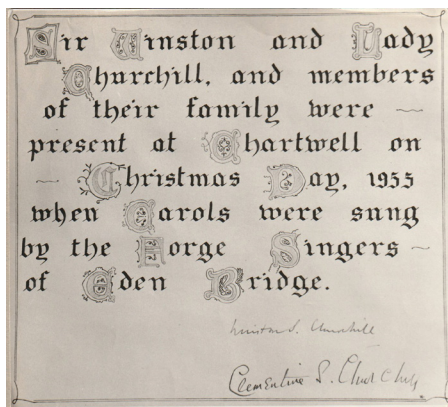 Sir Winston and Lady
Churchill, and members
of their family were
present at Chartwell on
Christmas Day, 1955
when Carols were sung
by the Forge Singers
of Eden Bridge.
Winston S. Churchill
Clementine S. Churchill